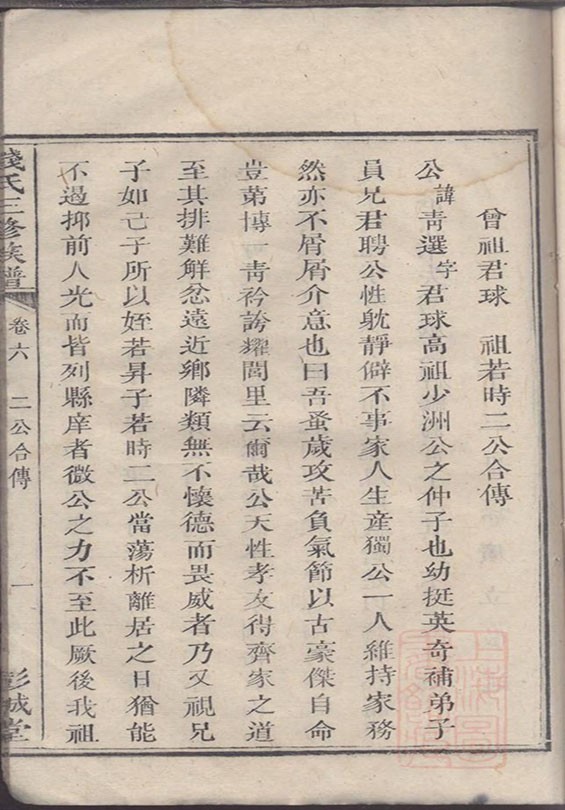 曾祖君球　祖若時二公合傳
公諱靑選字君球高祖少洲公之仲子也幼挺英奇補弟子
員兄君聘公性躭靜僻不事家人生產獨公一人維持家務
然亦不屑屑介意也曰吾蚤歲攻苦負氣節以古豪傑自命
豈第博一靑衿誇耀閭里云爾哉公天性孝友得齊家之道
至其排難解忿遠近鄉隣類無不懷德而畏威者乃又視兄
子如己子所以姪若昇子若時二公當蕩析離居之日猶能
不過抑前人光而皆列縣庠者微公之力不至此厥後我祖
錢氏三修族譜
卷六　二公合傳
一
彭城堂
上海圖